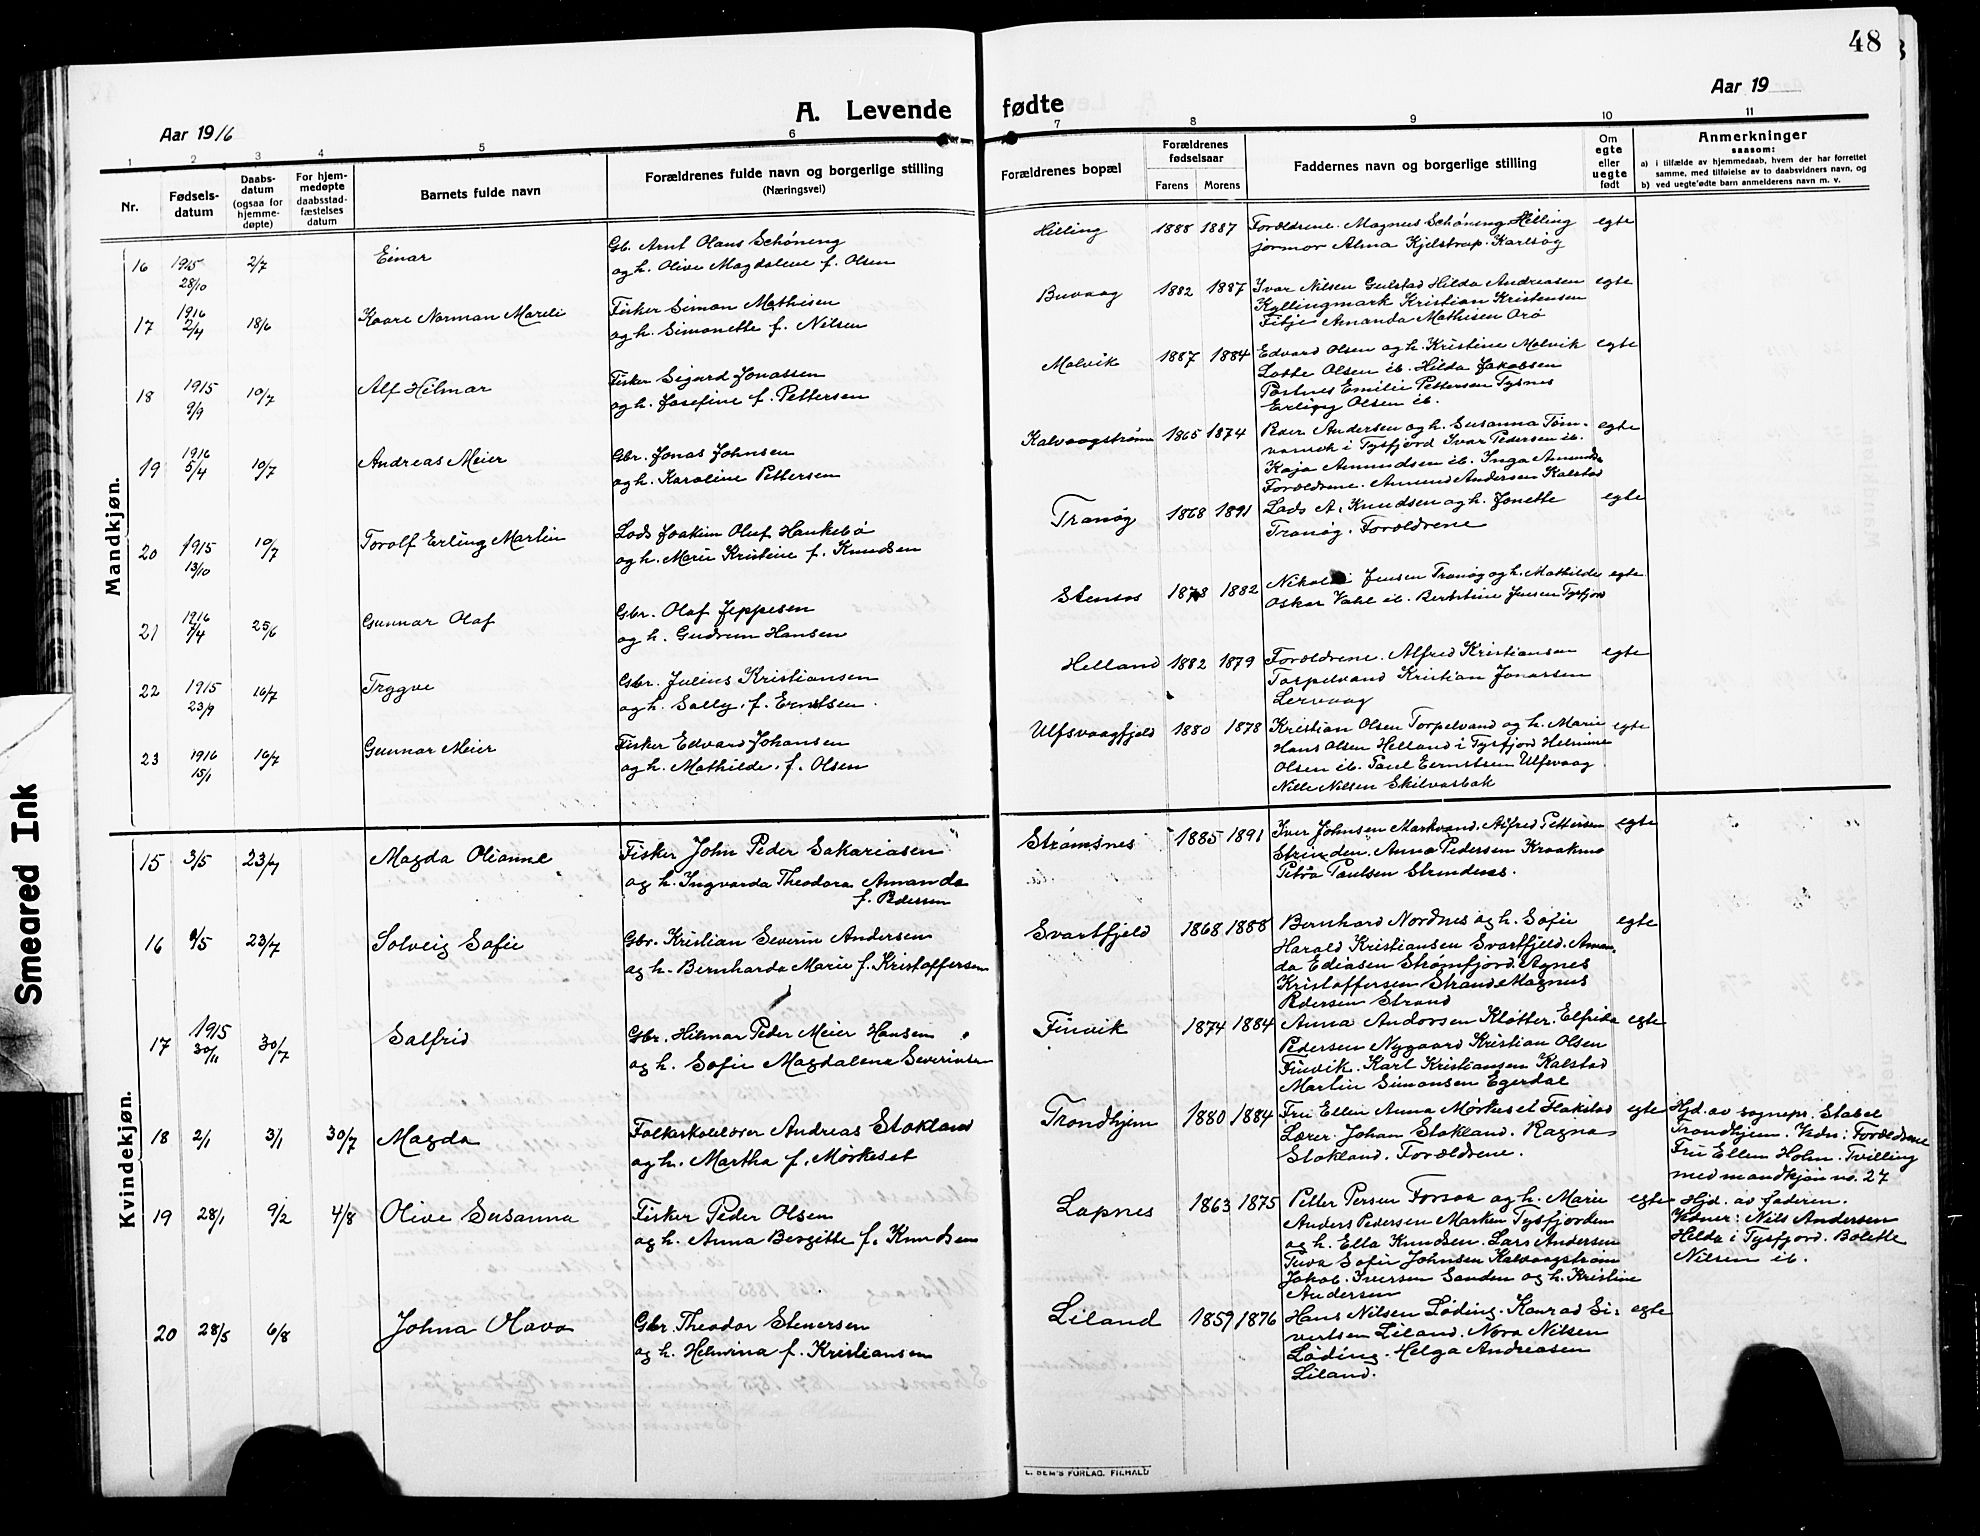 48
A. Levende fødte
Aar 1916
Aar 19
1 2 3 4 5 6 7 8 9 10 11
Nr.
Fødsels-
datum
Daabs-
datum
(ogsaa for
hjemme-
døpte)
For hjem-
medøpte
daabsstad-
fæstelses
datum
Barnets fulde navn
Forældrenes fulde navn og borgerlige stilling
(Næringsvei)
Forældrenes bopæl
Forældrenes
fødselsaar
Farens Morens
Faddernes navn og borgerlige stilling
Om
egte
eller
uegte
født
Anmerkninger
saasom:
a) i tilfælde av hjemmedaab, hvem der har forrettet
samme, med tilføielse av to daabsvidners navn, og
b) ved uegte fødte barn anmelderens navn m. v.
Mandkjøn.
16 1915 28/10 2/7 Einar
Gb. Arnt Olaus Schöning
og h. Olive Magdalene f. Olsen
Hilling 1888 1887
Forældrene. Magnus Schöning Hilling
jormor Alma Kjelstrup. Karlsøy
egte
17 1916 2/4 18/6 Kaare Norman Mareli
Fisker Simon Mathisen
og h. Simonette f. Nilsen
Buvaag 1882 1887
Ivar Nilsen Gulstad Hilda Andreasen
Kyllingmark Kristian Kristensen
Fitje Amanda Mathisen Orø
egte
18 1915 9/9 10/7 Alf Hilmar
Fisker Sigurd Jonassen
og h. Josefine f. Pettersen
Molvik 1887 1884
Edvard Olsen og h. Kristine Molvik
Lotte Olsen ib. Hilda Jakobsen
Postnes Emilie Pettersen Tysnes
Erling Olsen ib.
egte
19 1916 5/4 10/7 Andreas Meier
Gbr. Jonas Johnsen
og h. Karoline Pettersen
Kalvaagstrøm 1865 1874
Peder Andersen og h. Susanna Tøm-
vansvik i Tysfjord Ivar Pedersen ib.
Kaja Amundsen ib. Inga Amunds.
Forældrene. Amund Andersen Kalstad
egte
20 1915 13/10 10/7 Torolf Erling Martin
Lods Joakim Oluf Hankebø
og h. Marie Kristine f. Knudsen
Tranøy 1868 1891
Lods A. Knudsen og h. Jonette
Tranøy. Forældrene
egte
21 1916 7/4 25/6 Gunnar Olaf
Gbr. Olaf Jeppesen
og h. Gudrun Hansen
Stensos 1878 1882
Nikolai Jensen Tranøy og h. Mathilde
Oskar Vahl ib. Berntine Jensen Tysfjord
egte
22 1915 23/9 16/7 Trygve
Gbr. Julius Kristiansen
og h. Sally f. Ernstsen.
Helland 1882 1879
Forældrene. Alfred Kristiansen
Torpelvand Kristian Jonassen
Lervaag
egte
23 1916 15/1 16/7 Gunnar Meier
Fisker Edvard Johansen
og h. Mathilde. f. Olsen
Ulfsvaagfjeld 1880 1878
Kristian Olsen Torpelvand og h. Marie
Hans Olsen Helland i Tysfjord Helmine
Olsen ib. Paul Ernstsen Ulfsvaag
Nille Nilsen Skilvasbak
egte
Kvindekjøn.
15 3/5 23/7 Magda Olianne
Fisker John Peder Sakariasen
og h. Ingvarda Theodora Amanda
f. Pedersen
Strømsnes 1885 1891
Iver Johnsen Markvand. Alfred Pettersen
Strinden. Anna Pedersen Kraakmo
Petra Paulsen Strindnes.
egte
16 9/5 23/7 Solveig Sofie
Gbr. Kristian Severin Andersen
og h. Bernharda Marie f. Kristoffersen
Svartfjeld 1868 1888
Bernhard Nordnes og h. Sofie
Harald Kristiansen Svartfjeld. Aman-
da Ediasen Strømfjord. Agnes
Kristoffersen Strand Magnus
Pedersen Strand
egte
17 1915 30/11 30/7 Salfrid
Gbr. Hilmar Peder Meier Hansen
og h. Sofie Magdalena Severinsen
Finvik 1874 1884
Anna Andorsen Kløtter. Elfrida
Pedersen Nygaard Kristian Olsen
Finvik. Karl Kristiansen Kalstad
Martin Simonsen Egerdal
egte
18 2/1 3/1 30/7 Magda
Folkeskolelærer Andreas Stokland
og h. Martha f. Mørkeset
Trondhjem 1880 1884
Fru Ellen Anna Mørkeset Flakstad
Lærer Johan Stokland. Ragna
Stokland. Forældrene.
egte
Hjd. av sognepr. Stabel
Trondhjem. Vidn: Forældrene
Fru Ellen Holm. Tvilling
med mandkjøn no. 27
19 28/1 9/2 4/8 Olive Susanna
Fisker Peder Olsen
og h. Anna Bergitte f. Knudsen
Lapnes 1863 1875
Petter Persen Forsaa og h. Marie
Anders Pedersen Marken Tysfjorden
og h. Ella Knudsen. Lars Andersen
Tuva Sofie Johnsen Kalvaagstrøm
Jakob Iversen Sanden og h. Kristine
Andersen
egte
Hjd. av faderen.
Vidner: Nils Andersen
Helda i Tysfjord. Bolette
Nilsen ib.
20 28/5 6/8 Johna Olava
Gbr. Theodor Stenersen
og h. Helmina f. Kristiansen
Liland 1859 1876
Hans Nilsen Løding. Konrad Si-
vertsen Liland. Nora Nilsen
Løding. Helga Andreasen
Liland.
egte
E. SEM'S FORLAG. FR.HALD
Smeared Ink